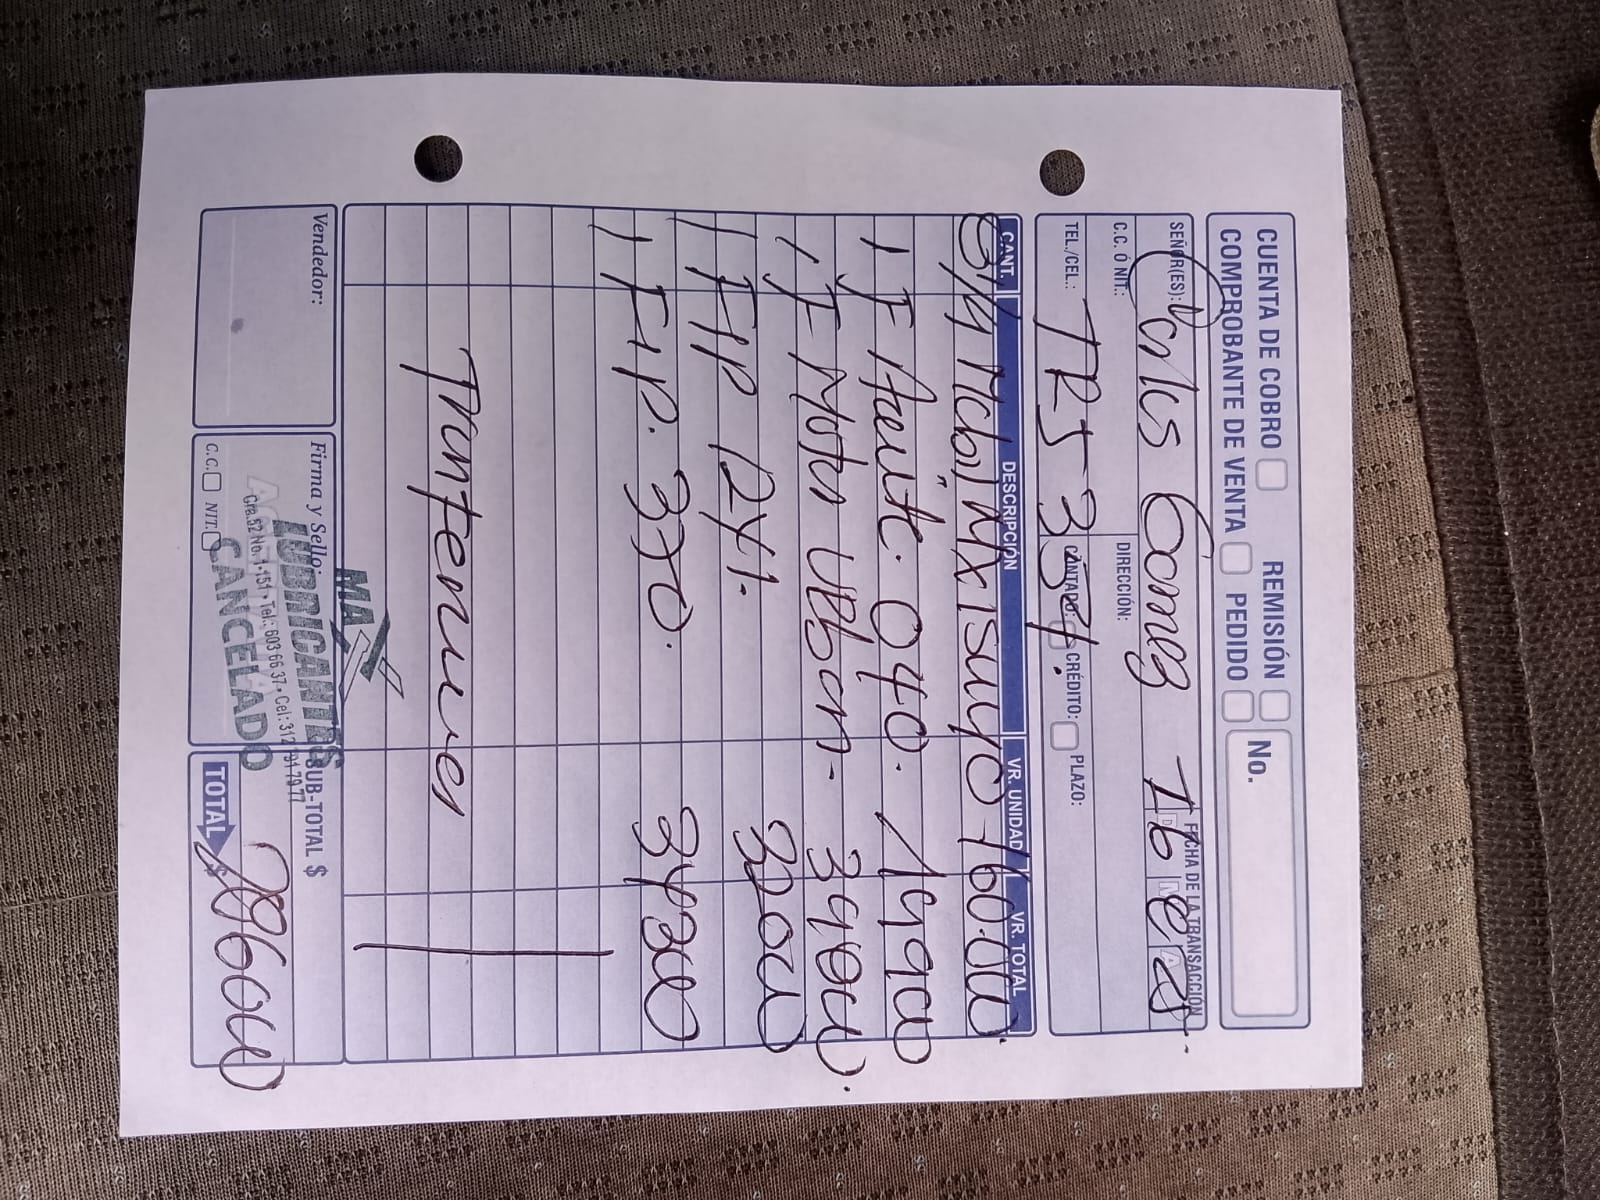 CUENTA DE COBRO REMISIÓN No.
COMPROBANTE DE VENTA PEDIDO
SEÑOR(ES): Carlos Gomez 16 FECHA DE LA TRANSACCIÓN
C.C. Ó NIT.: DIRECCIÓN: D M A
TEL./CEL.: TRJ 334. CONTADO: CRÉDITO: PLAZO:
CANT. DESCRIPCIÓN VR. UNIDAD VR. TOTAL
3/4 Mobil Mx 15W40 160.000
1 F Aceite. 040. 19900
1 F Motor Urban. 39000.
1 FHP 1241. 32000
1 FHP. 370. 34200
Vendedor:
Firma y Sello:
C.C. NIT.
MAX
LUBRICANTES
Cra.52 No. 1-151 Tel.: 603 66 37 Cel: 312
CANCELADO
SUB-TOTAL $
TOTAL $